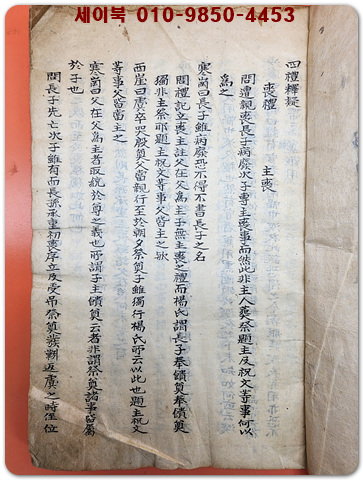 세이북 010-9850-4453
四禮釋疑
喪禮 主喪
問遭親喪長子病廢次子專主喪事而然此非主人喪祭題主及祝文等事何以
爲之
寒岡曰長子雖病廢恐不得不書長子之名
問禮記立喪主註父在父爲主子無主喪之禮而楊氏謂長子奉饋奠奉饋奠
獨非主祭耶題主祝文等事父皆主之歟
西崖曰虞卒哭殷奠父當親行至於朝夕祭奠子雖獨行楊氏所云以此也題主祝文
等事父皆當主之
寒岡曰父在父爲主者取統於尊之義也所謂子主饋奠云者非謂祭奠諸事皆屬
於子也
問長子先亡次子雖有而長孫承重初喪序立及受吊祭奠發靷返虞之時坐位